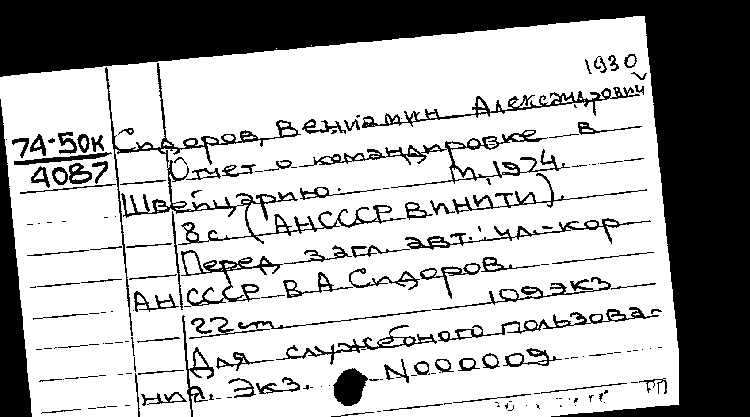 1930
74-50к
4087
Сидоров, Вениамин Александрович
Отчет о командировке в
Швейцарию. М, 1974.
8 с. (АН СССР ВИНИТИ).
Перед загл. авт.: чл.-кор
АН СССР В А Сидоров.
22 см. 109 экз
Для служебного пользова-
ния. Экз. N000009.
РП